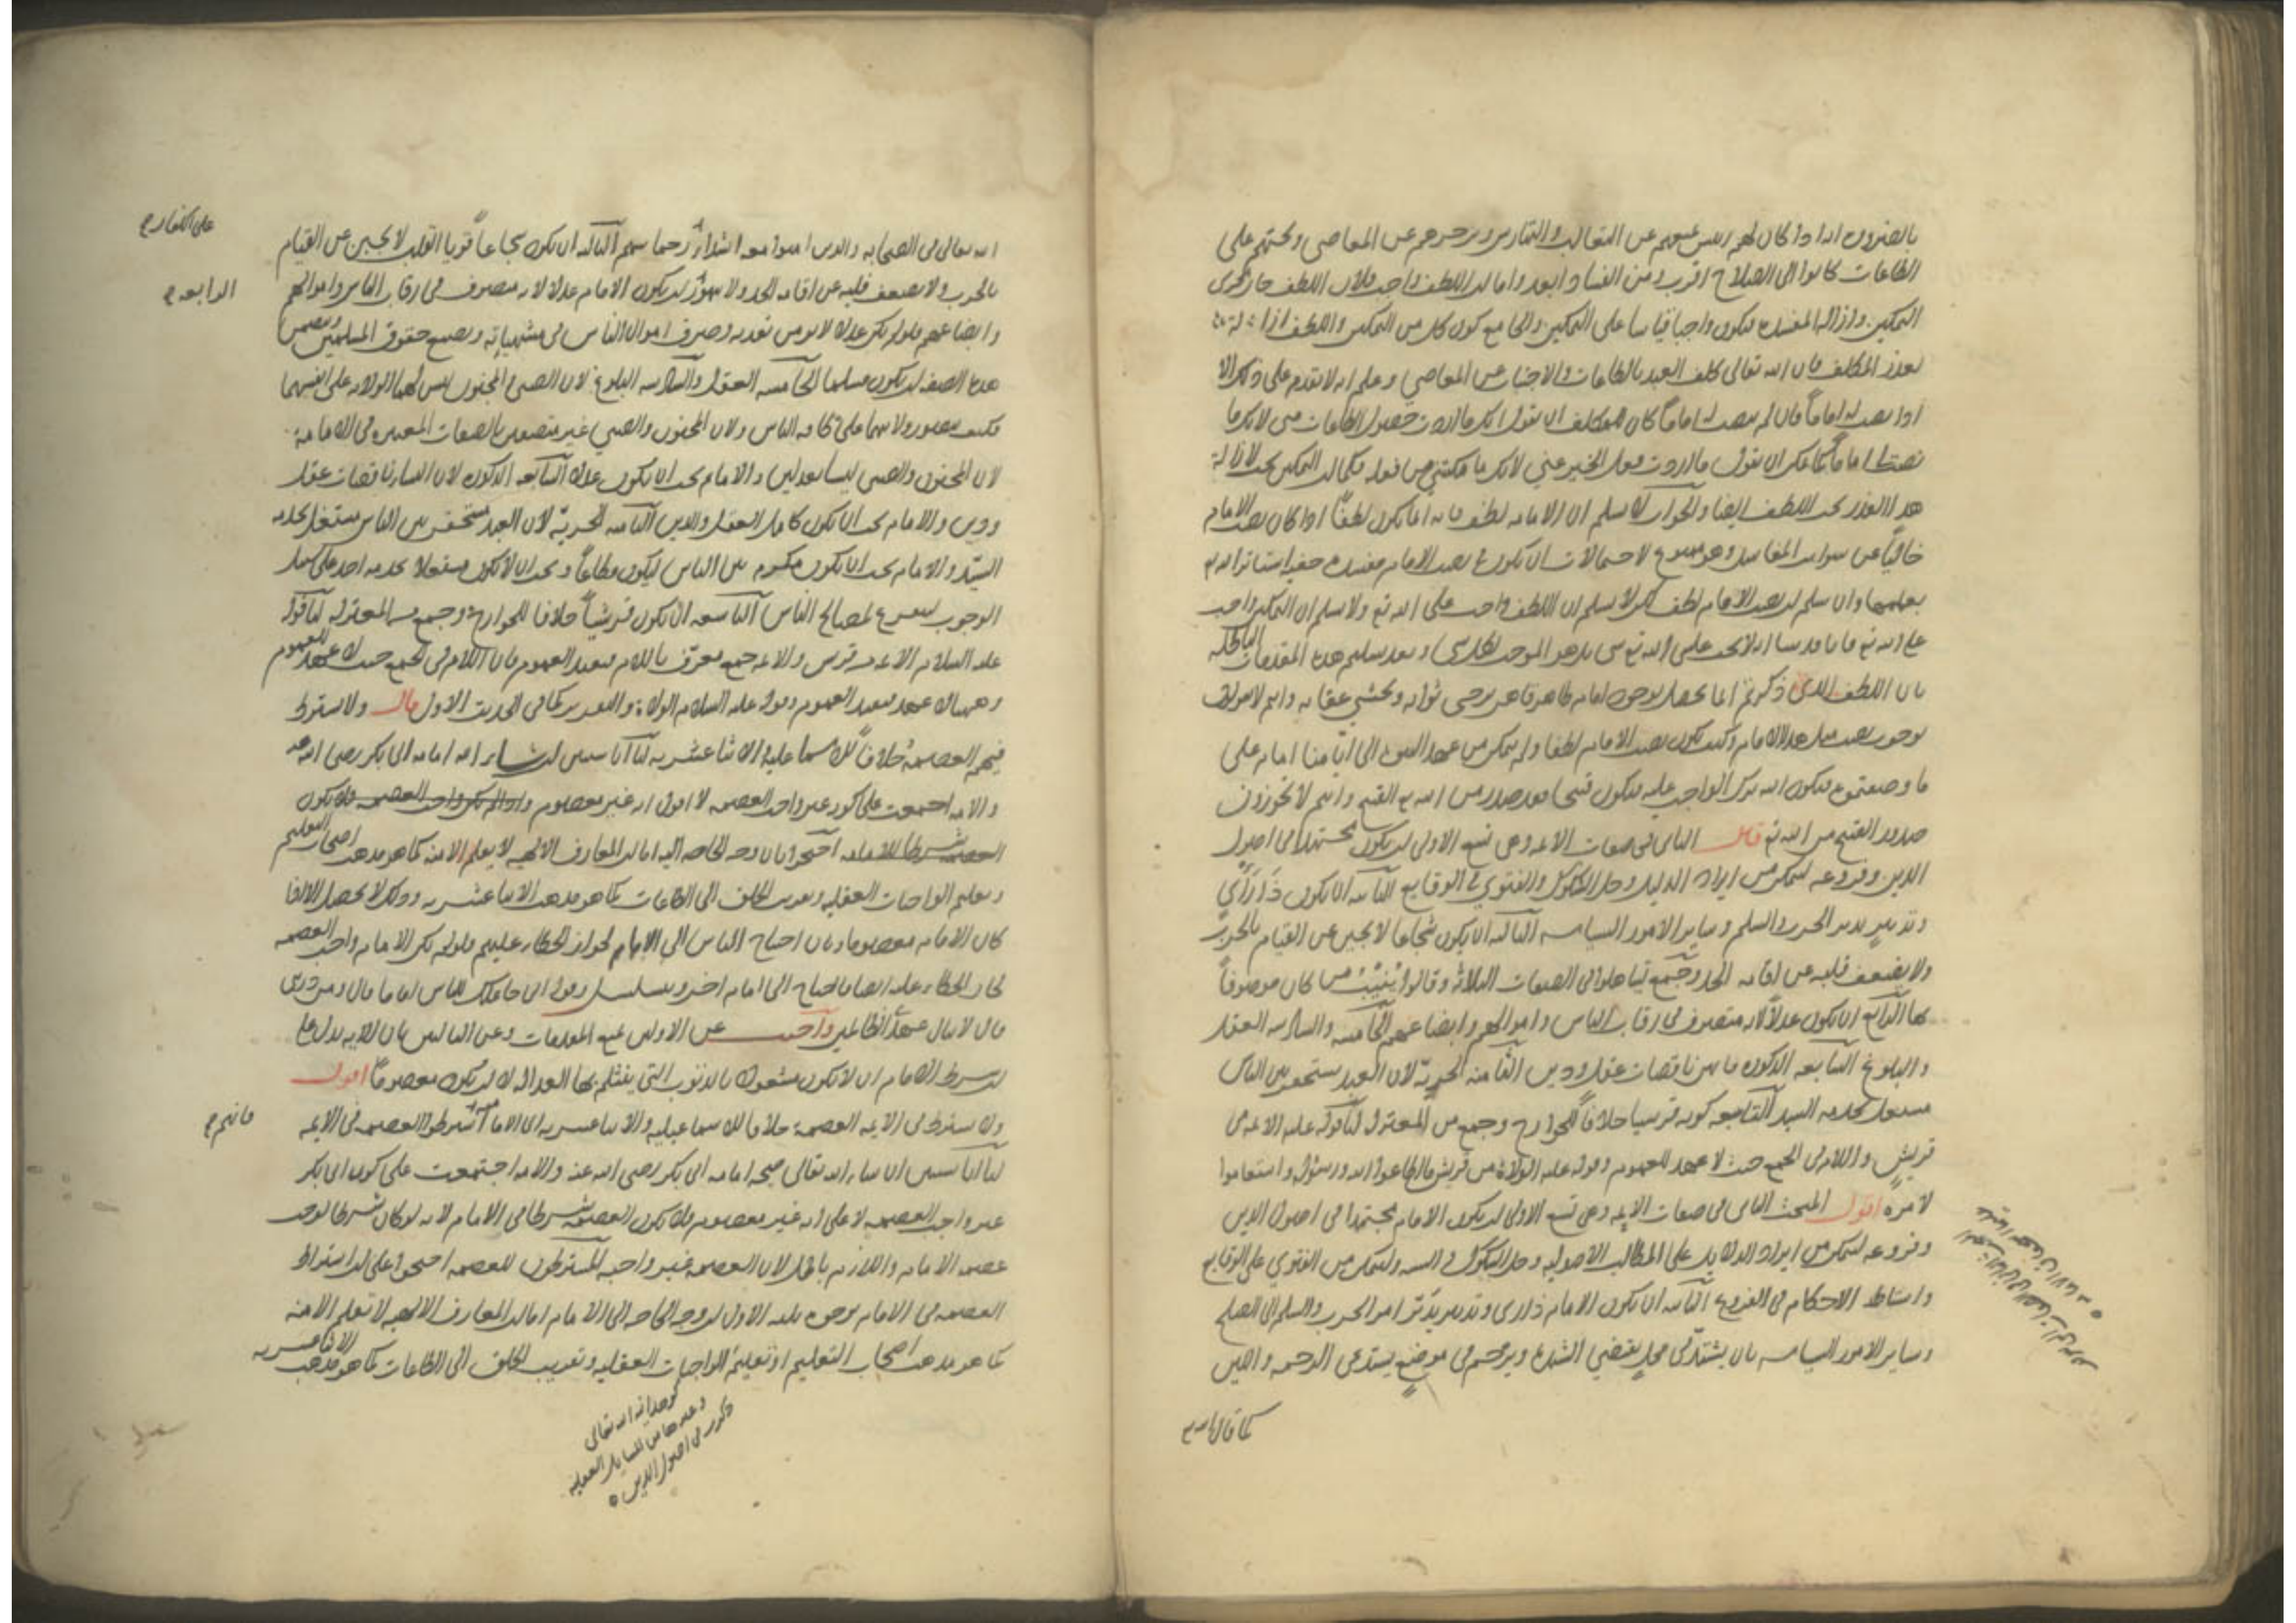 بالضرورة انه اذا كان لهم رئيس يمنعهم عن التغالب والتهارش ويزجرهم عن المعاصي ويحثهم على
الطاعات كانوا الى الصلاح اقرب ومن الفساد ابعد واما ان اللطف واجب فلان اللطف جار مجرى
التمكين وازالة المفسدة فيكون واجبا قياسا على التمكين والجامع كون كل من التمكين واللطف ازالة
لعذر المكلف فان الله تعالى كلف العبد بالطاعات والاجتناب عن المعاصي وعلم انه لا يقدم على ذلك الا
اذا نصب له اماماً فان لم ينصب له اماماً كان للمكلف ان يقول انك ما اردت حصول الطاعات مني لانك ما
نصبت لي اماماً كما يمكن ان يقول ما اردت فعل الخير عني لانك ما مكنتني من فعله فكما ان التمكين يجب لازالة
هذا العذر يجب اللطف ايضا والجواب لا نسلم ان الامامة لطف فانه انما يكون لطفاً اذا كان نصب الامام
خالياً عن شوائب المفاسد وهو ممنوع لاحتمال ان يكون في نصب الامام مفسدة خفية استاثر الله تع
بعلمها وان سلم ان نصب الامام لطف لكن لا نسلم ان اللطف واجب على الله تع ولا نسلم ان التمكين واجب
على الله تع فانا قد بينا انه لا يجب على الله تع شى بل هو الموجد لكل شى وبعد تسليم هذه المقدمات الباطلة
بان اللطف الذي ذكرتم انما يحصل بوجود امام ظاهر قاهر يرجى ثوابه ويخشى عقابه وانتم لا تقولون
بوجوب نصب مثل هذا الامام وكيف يكون نصب الامام لطفا ولم يتمكن من عهد النبوة الى ايامنا امام على
ما وصفتموه فيكون الله ترك الواجب عليه فيكون قبيحا فقد صدر من الله تع القبيح وانتم لا تجوزون
صدور القبيح من الله تع قال الثاني في صفات الائمة وهي تسع الاولى ان يكون مجتهدا في اصول
الدين وفروعه ليتمكن من ايراد الدليل وحل الشكوك والفتوى في الوقايع الثانية ان يكون ذا رَأيٍ
وتدبيرٍ يدبر الحرب والسلم وساير الامور السياسية الثالثة ان يكون شجاعا لا يجبن عن القيام بالحرب
ولا يضعف قلبه عن اقامة الحد وجَمع تساهلوا في الصفات الثلاث وقالوا يُنيب من كان موصوفاً
بها الرابع ان يكون عدلاً لانه متصرف في رقاب الناس واموالهم وابضاعهم الخامسة والسادسة العقل
والبلوغ السابعة الذكورة فانهن ناقصات عقل ودين الثامنة الحريّة لان العبد مستحقر بين الناس
مشتغل بخدمة السيد التاسعة كونه قرشيا خلافاً للخوارج وجمع من المعتزلة لنا قوله عليه الائمة من
قريشٍ واللام في الجمع حيث لا عهد للعموم وقوله عليه الولاة من قريش ما اطاعوا الله ورسوله واستقاموا
لامره اقول المبحث الثاني في صفات الائمة وهي تسع الاولى ان يكون الامام مجتهدا في اصول الدين
وفروعه ليتمكن من ايراد الدلايل على المطالب الاصولية وحل الشكوك والشبه وليتمكن من الفتوى على الوقايع
واستنباط الاحكام في الفروع الثانية ان يكون الامام ذا راى وتدبير يدبّر امر الحرب والسلم اى الصلح
وساير الامور السياسية بان يشتدّ في محلٍ يقتضي الشدة ويرحم في موضعٍ يستدعي الرحمة واللين
كما قال الله تع
الله تعالى في الصحابة والذين امنوا معه اشداءُ رحماء بينهم الثالثة ان يكون شجاعاً قويا القلب لا يجبن عن القيام
على الكفار صح
بالحرب ولا يضعف قلبه عن اقامة الحد ولا يتهوّر ان يكون الامام عدلا لانه متصرف في رقاب الناس واموالهم
الرابعة صح
وابضاعهم فلو لم يكن عدلا لا يؤمن تعديه وصرف اموال الناس في مشتهياتِه وتضييع حقوق المسلمين ويتضمن
هذه الصفة ان يكون مسلما الخامسة العقل والسادسة البلوغ لان الصبي والمجنون ليس لهما الولاية على انفسهما
فكيف يتصور ولايتهما على كافة الناس ولان المجنون والصبي غير متصفين بالصفات المعتبرة في الامامة
لان المجنون والصبي ليسا بعدلين والامام يجب ان يكون عدلا السابعة الذكورة لان النساء ناقصات عقل
ودين والامام يجب ان يكون كامل العقل والدين الثامنة الحريّة لان العبد مستحقر بين الناس مشتغل بخدمة
السيّد والامام يجب ان يكون مكرم بين الناس ليكون مطاعاً ويجب ان لا يكون مشتغلا بخدمة احد على سبيل
الوجوب ليتفرغ لمصالح الناس التاسعة ان يكون قرشياً خلافا للخوارج وجمع من المعتزلة لنا قوله
عليه السلام الائمة من قريش والائمة جمع معرّف باللام فيفيد العموم فان اللام في الجمع حيث لا عهد للعموم
وههنا لا عهد فيفيد العموم وقوله عليه السلام الولاة والتقدير كما في الحديث الاول قال ولا يشترط
فيهم العصمة خلافاً للاسماعلية والاثنا عشرية لنا انا سنبين ان شاء الله امامة ابي بكر رضي الله عنه
والامة اجتمعت على كونه غير واجب العصمة لا اقول انه غير معصوم واذا لم يكن واجب العصمة فلا يكون
العصمة شرطا للامامة احتجوا بان وجه الحاجة اليه اما ان المعارف الالهية لا يعلم الا منه كما هو مذهب اصحاب التعليم
وتعليم الواجبات العقلية وتقريب الخلق الى الطاعات كما هو مذهب الاثنا عشرية وذلك لا يحصل الا اذا
كان الامام معصوما وبان احتياج الناس الى الامام لجواز الخطاء عليهم فلو لم يكن الامام واجب العصمة
لجاز الخطاء عليه ايضا فاحتاج الى امام اخر ويتسلسل وقوله اني جاعلك للناس اماما قال ومن ذريتي
قال لا ينال عهدي الظالمين واجيب عن الاولين بمنع المقدمات وعن الثالث بان الاية يدل على
ان شرط الامام ان لا يكون مشغولا بالذنوب التي ينثلم بها العدالة لا ان يكون معصوماً اقول
ولا يشترط في الائمة العصمة خلافا للاسماعيلية والاثنا عشرية اى الامامية اشترطوا العصمة في الائمة
فانهم صح
لنا انا سنبين ان شاء الله تعالى صحة امامة ابي بكر رضي الله عنه والامة اجتمعت على كون ابي بكر
غير واجب العصمة لا على انه غير معصوم فلا يكون العصمة شرطا في الامام لانه لو كان شرطا لوجب
عصمة الامام واللازم باطل لان العصمة غير واجبة المشترطون للعصمة احتجوا على ان اشتراط
العصمة في الامام بوجوه ثلاثة الاول ان وجه الحاجة الى الامام اما ان المعارف الالهية لا تعلم الا منه
كما هو مذهب اصحاب التعليم او تعليم الواجبات العقلية وتقريب الخلق الى الطاعات كما هو مذهب الاثنا عشرية
كوحدانية الله تعالى
وغيرها من المسايل العقلية
ذكرت في اصول الدين